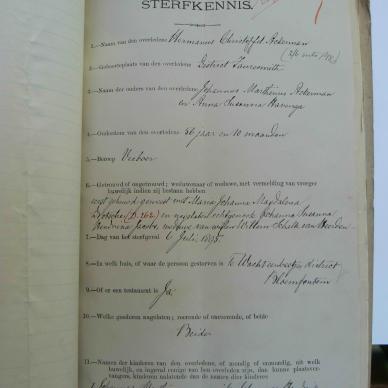 STERFKENNIS.
1.—Naam van den overledene Hermanus Christoffel Ackerman
2.—Geboorteplaats van den overledene District Fauresmith
3.—Naam der ouders van den overledene Johannes Marthinus Ackerman
en Anna Susanna
4.—Ouderdom van den overledene 56 jaar en 10 maanden
5.—Beroep Veeboer
6.—Getrouwd of ongetrouwd; weduwnaar of weduwe, met vermelding van vroeger
huwelijk indien zij bestaan hebben
eerst gehuwd geweest met Maria Johanna Magdalena
(D.262) en nagelaten echtgenoote Johanna Susanna
Hendrina Jacobs, weduwe van wijlen Willem Schalk van der
7.—Dag van het sterfgeval 6 Juli 1895
8.—In welk huis, of waar de persoon gestorven is Te district
Bloemfontein
9.—Of er een testament is Ja
10.—Welke goederen nagelaten; roerende of onroerende, of beide
Beide
11.—Namen der kinderen van den overledene, of mondig of onmondig, uit welk
huwelijk, en ingeval eenige van hen overleden zijn, dan kunne plaatsver-
vangers, kinderen nalatende dan de namen dier kinderen